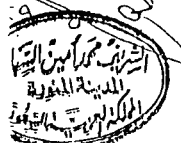 الشريف محمد أمين
المدينة المنورة
المملكة العربية السعودية